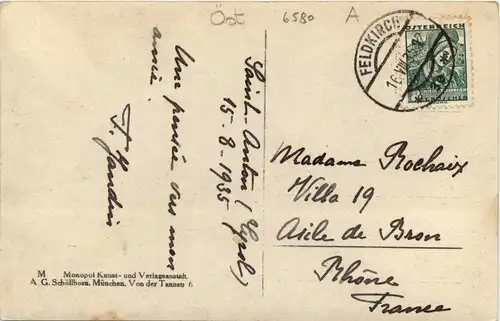 Öst
6580
A
FELDKIRCH
ÖSTERREICH
Saint-Anton (Tyrol)
15-8-1935
Une pensée vers mon
amie.
Madame Rochaix
Villa 19
Asile de Bron
Rhône
France
M Monopol Kunst- und Verlagsanstalt
A. G. Schöllhorn, München, Von der Tannstr 6.